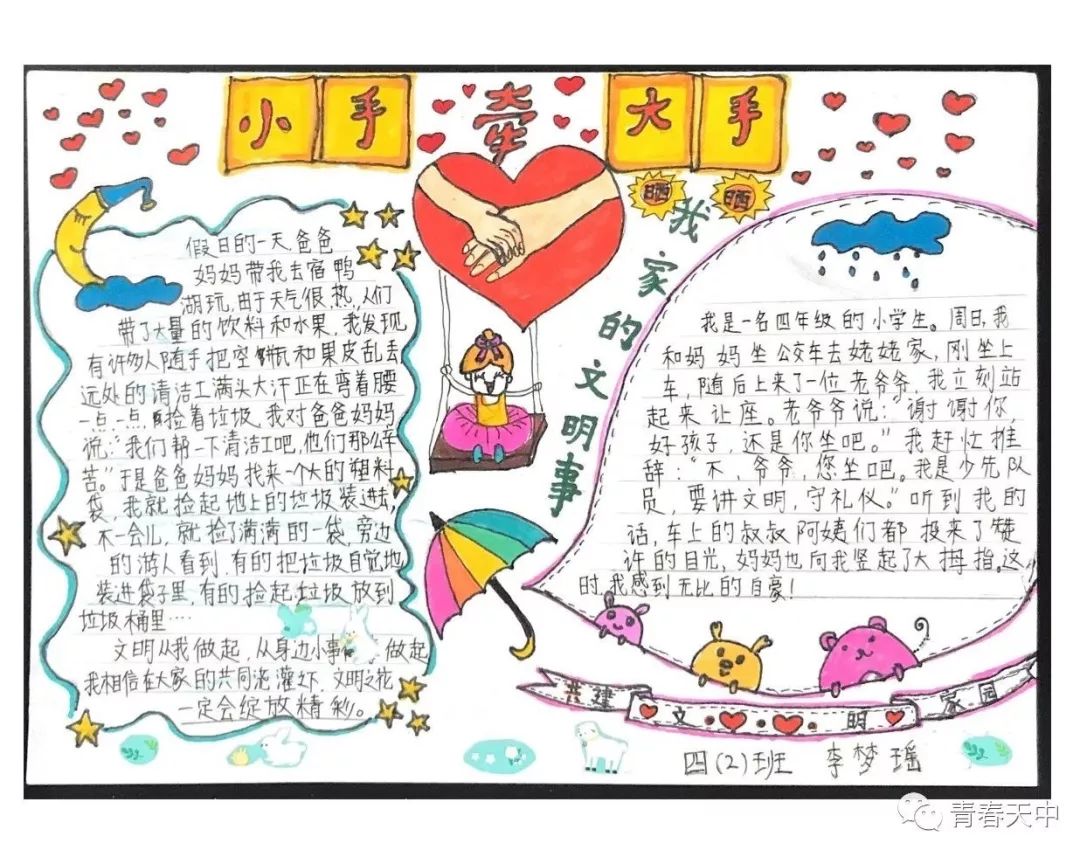 小手牵大手
晒晒我家的文明事
假日的一天爸爸
妈妈带我去宿鸭
湖玩,由于天气很热,人们
带了大量的饮料和水果,我发现
有许多人随手把空瓶和果皮乱丢
远处的清洁工满头大汗正在弯着腰
一点一点捡着垃圾,我对爸爸妈妈
说:“我们帮一下清洁工吧,他们那么辛
苦”。于是爸爸妈妈找来一个大的塑料
袋,我就捡起地上的垃圾装进去,
不一会儿,就捡了满满的一袋,旁边
的游人看到,有的把垃圾自觉地
装进袋子里,有的捡起垃圾放到
垃圾桶里……
文明从我做起,从身边小事做起
我相信在大家的共同浇灌下,文明之花
一定会绽放精彩。
我是一名四年级的小学生。周日,我
和妈妈坐公交车去姥姥家,刚坐上
车,随后上来了一位老爷爷,我立刻站
起来让座。老爷爷说:“谢谢你,
好孩子,还是你坐吧。”我赶忙推
辞:“不,爷爷,您坐吧。我是少先队
员,要讲文明,守礼仪。”听到我的
话,车上的叔叔阿姨们都投来了赞
许的目光,妈妈也向我竖起了大拇指。这
时,我感到无比的自豪!
共建文明家园
四(2)班 李梦瑶
青春天中